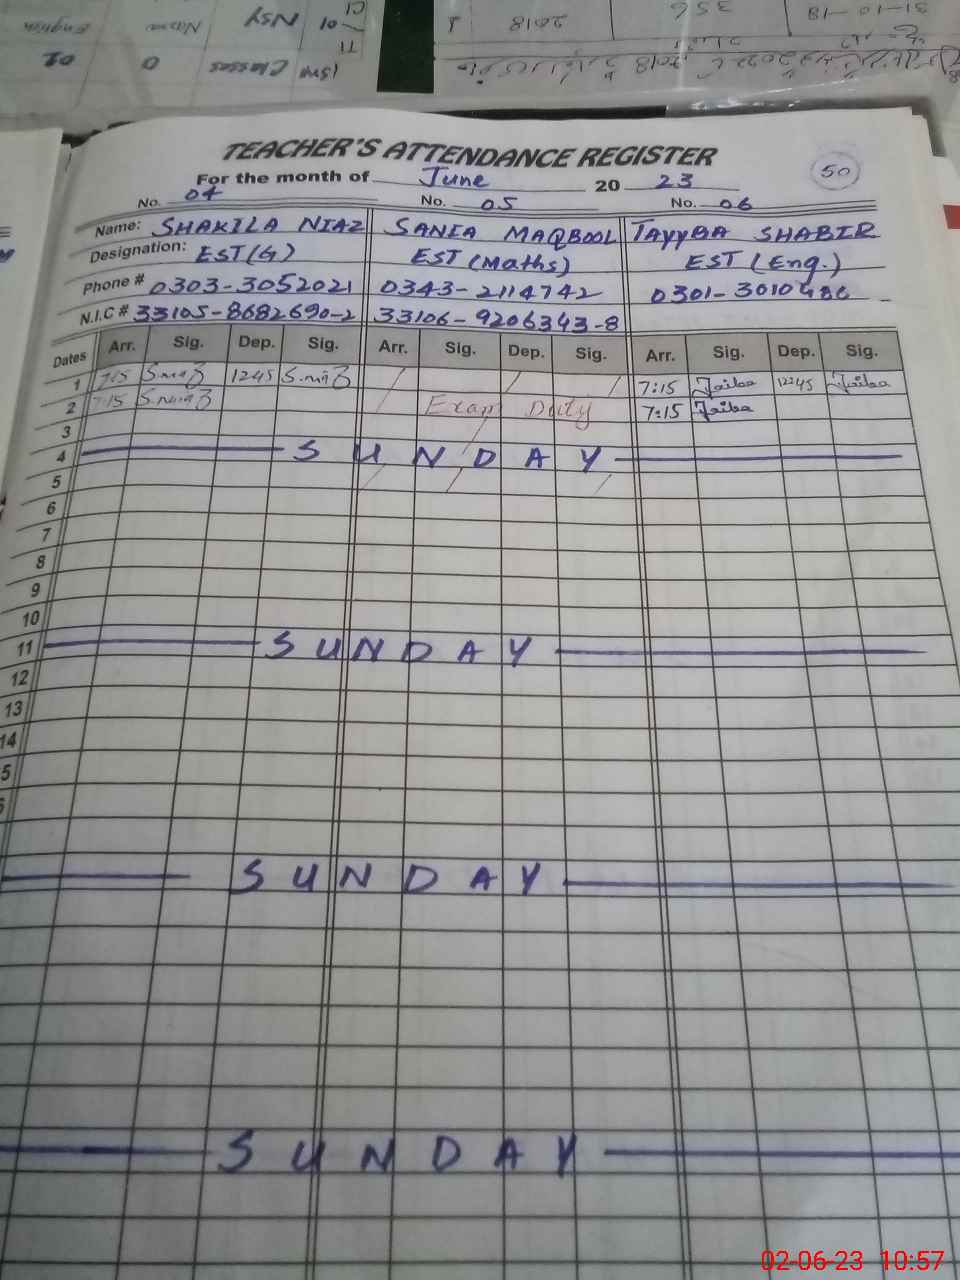 31-10-18
356
2018
1
NSY
01
Name
English
Classes
0
TEACHER'S ATTENDANCE REGISTER
50
For the month of June 20 23
No. 04 No. 05 No. 06
Name: SHAKILA NIAZ SANIA MAQBOOL TAYYBA SHABIR
Designation: EST(G) EST (Maths) EST (Eng.)
Phone # 0303-3052021 0343-2114742 0301-3010486
N.I.C # 33105-8682690-2 33106-9206343-8
Dates Arr. Sig. Dep. Sig. Arr. Sig. Dep. Sig. Arr. Sig. Dep. Sig.
1 7:15 1245 7:15 1245
2 7:15 Exam Duty 7:15
3
4 SUNDAY
5
6
7
8
9
10
11 SUNDAY
12
13
14
5
SUNDAY
SUNDAY
02-06-23 10:57